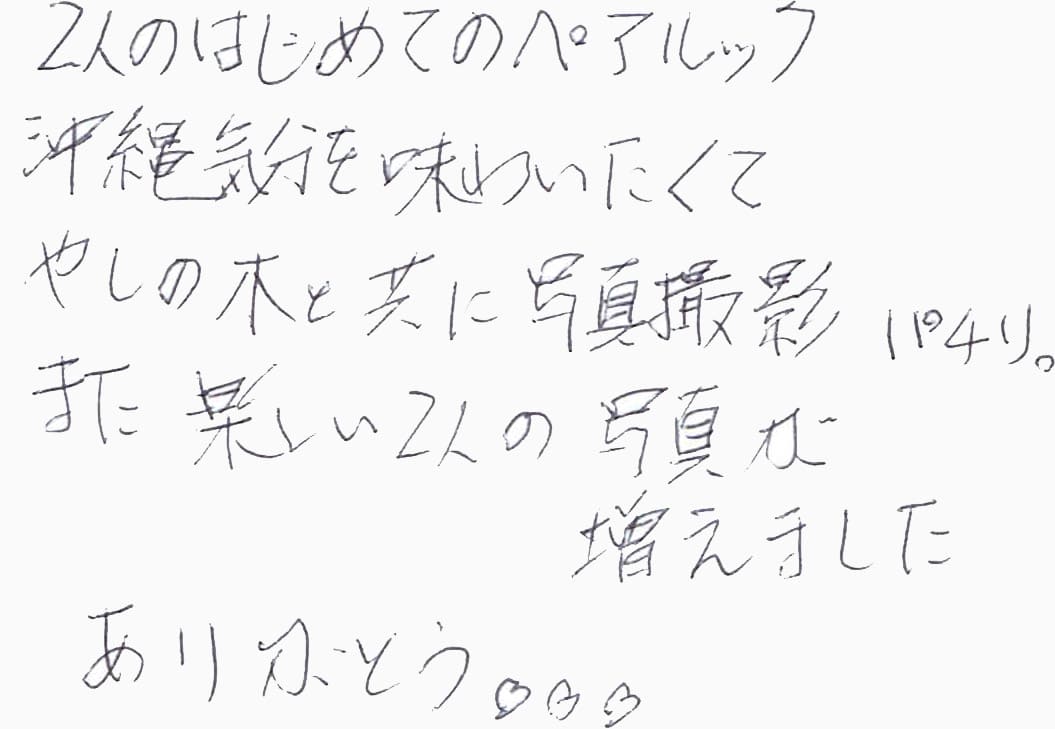 2人のはじめてのペアルック
沖縄気分を味わいたくて
やしの木と共に写真撮影 パチリ。
また楽しい2人の写真が
増えました
ありがとう。♡♡♡